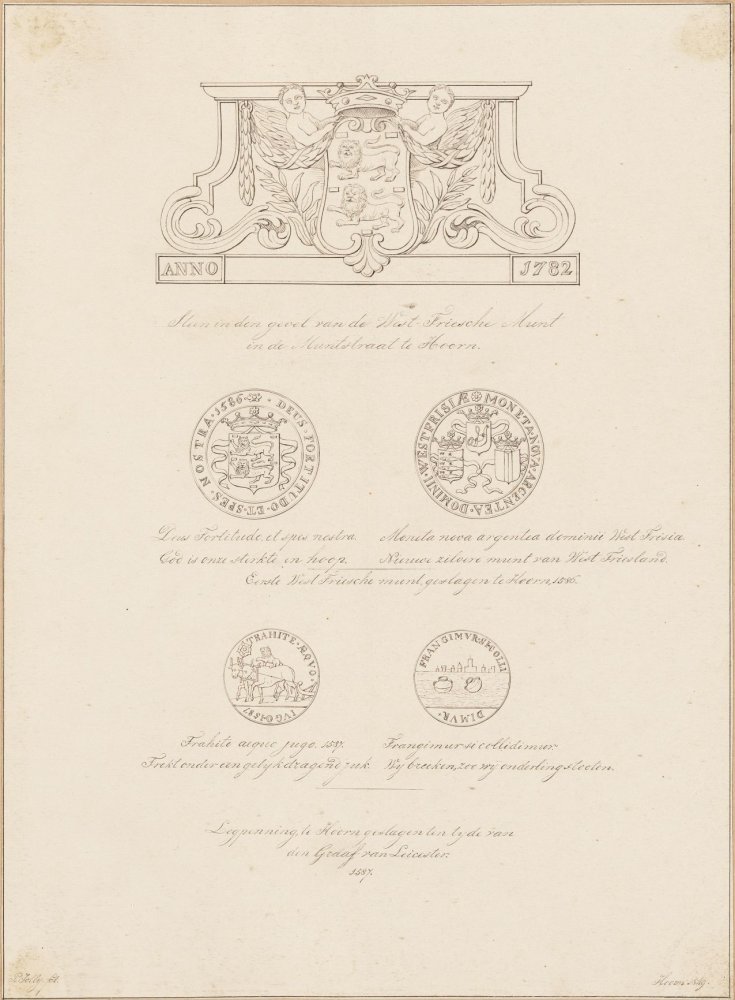 ANNO 1782
Steen in den gevel van de West-Friesche Munt
in de Muntstraat te Hoorn.
NOSTRA·1586· DEUS·FORTITUDO·ET·SPES·
DOMINII·WESTFRISIÆ MONETA·NOVA·ARGENTEA·
Deus Fortitudo, et spes nostra. Moneta nova argentea dominii West Frisia.
God is onze sterkte en hoop. Nieuwe zilvere munt van West Friesland.
Eerste West Friesche munt, geslagen te Hoorn, 1586.
TRAHITE·ÆQUO·
IVGO·1587
FRANGIMVR·SI·COLLI
DIMVR·
Trahite aequo jugo. 1587. Frangimur si collidimur.
Trekt onder een gelyk dragend juk. Wij breeken, zoo wij onderling stooten.
Legpenning, te Hoorn geslagen ten tyde van
den Graaf van Leicester.
1587.
Hoorn